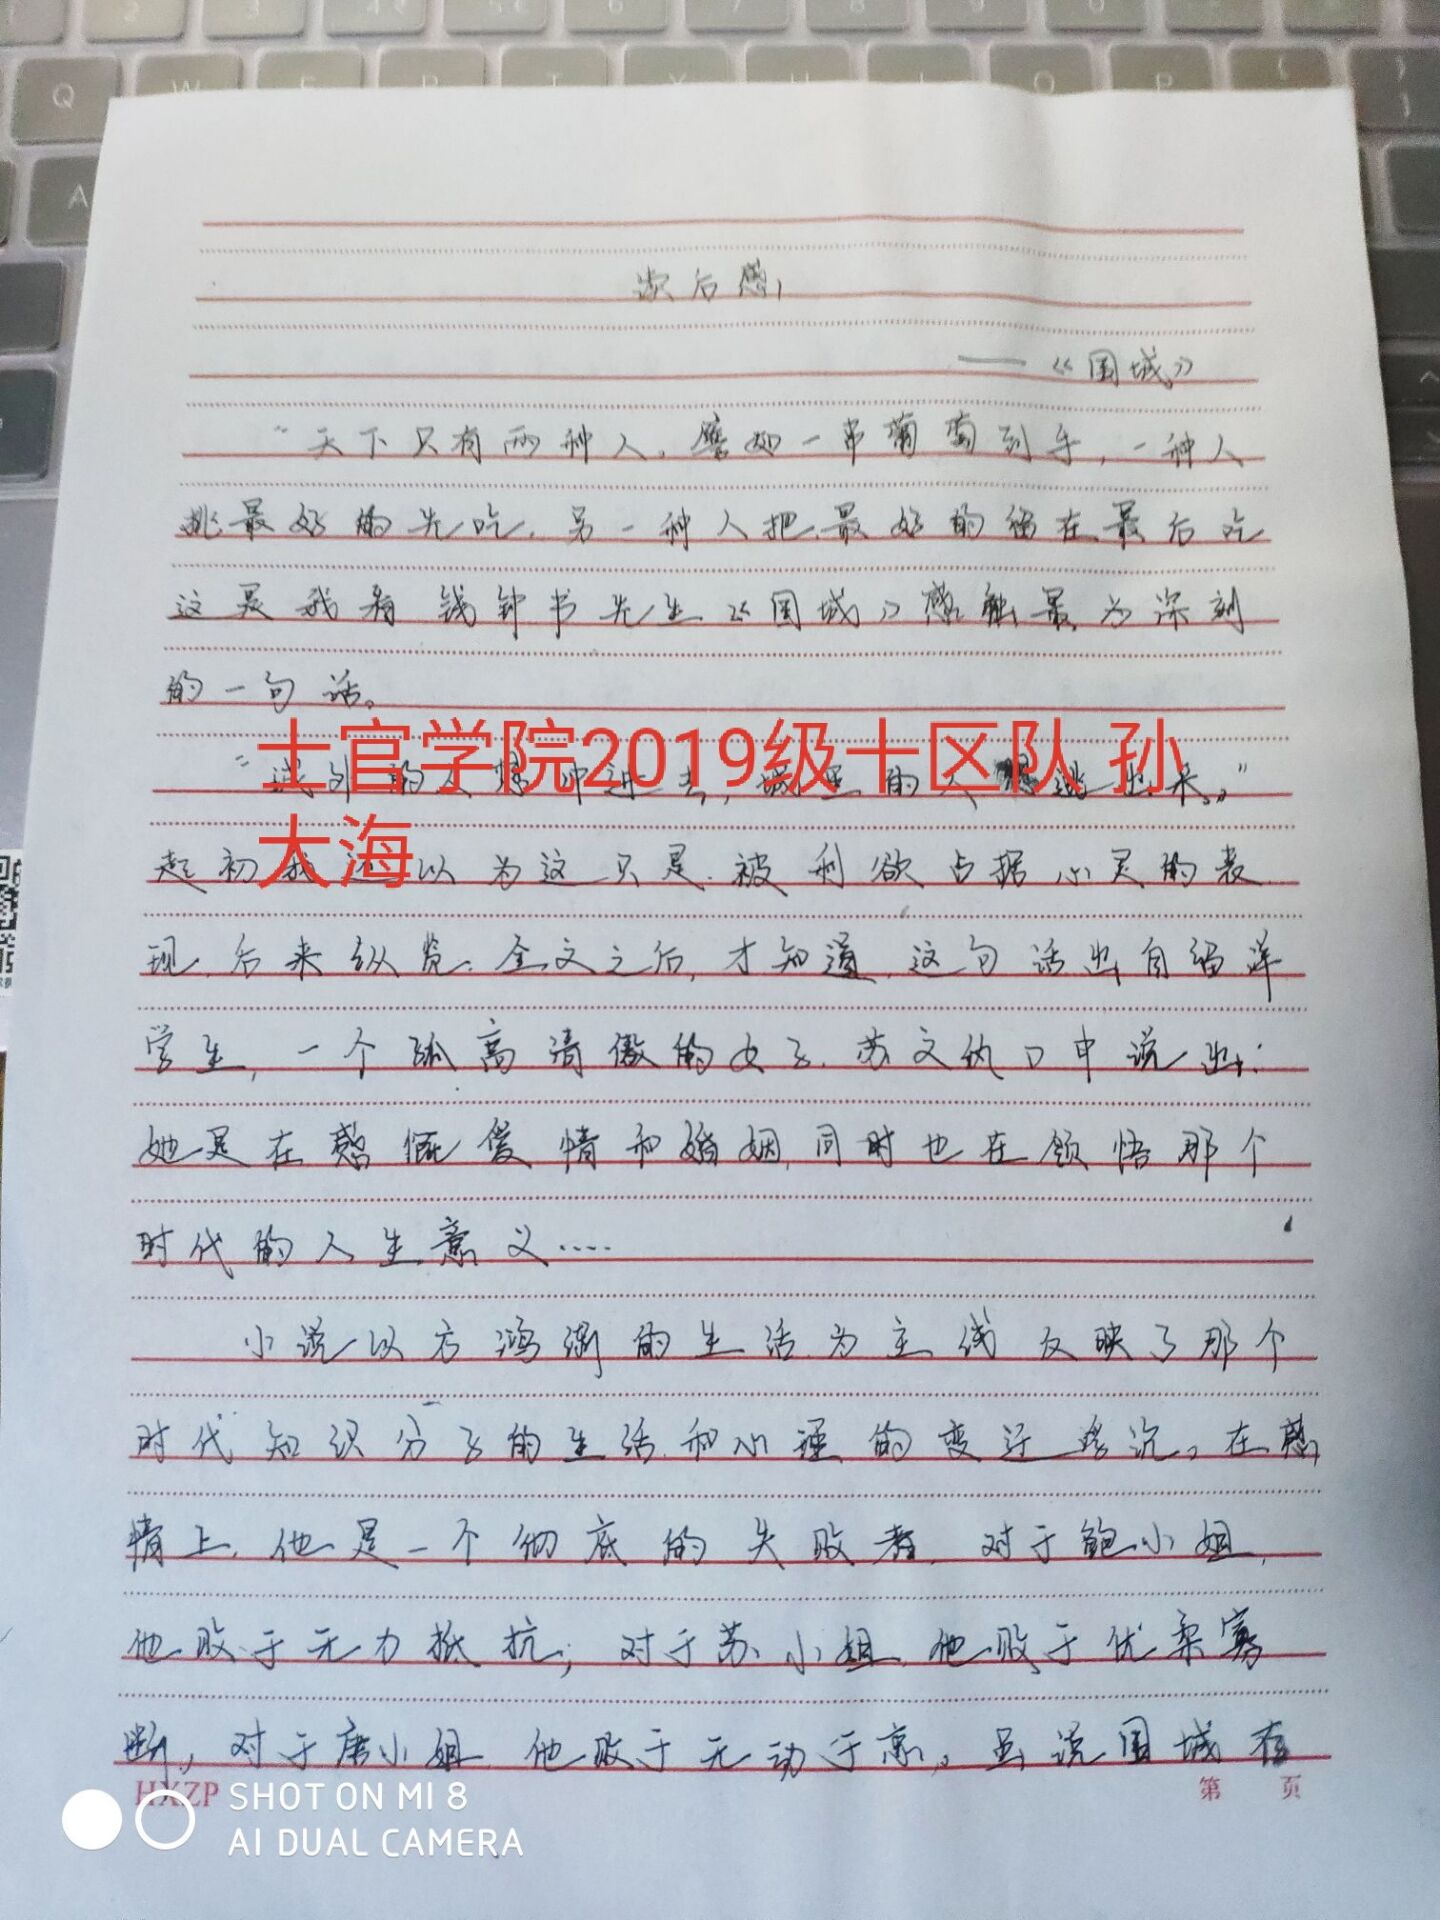 读后感
——《围城》
“天下只有两种人。譬如一串葡萄到手，一种人
挑最好的先吃，另一种人把最好的留在最后吃
这是我看钱钟书先生《围城》感触最为深刻
的一句话。
“城外的人想冲进去，城里的人想逃出来。”
士官学院2019级十区队 孙
大海
起初我还以为这只是被利欲占据心灵的表
现，后来纵览全文之后，才知道，这句话出自留洋
学生，一个孤高清傲的女子，苏文纨口中说出：
她是在感慨爱情和婚姻，同时也在领悟那个
时代的人生意义····
小说以方鸿渐的生活为主线反映了那个
时代知识分子的生活和心理的变迁 沉。在感
情上，他是一个彻底的失败者，对于鲍小姐，
他败于无力抵抗；对于苏小姐，他败于优柔寡
断，对于唐小姐，他败于无动于衷。虽说围城有
HXZP
第 页
SHOT ON MI 8
AI DUAL CAMERA
Q W E R T Y U I O P
A